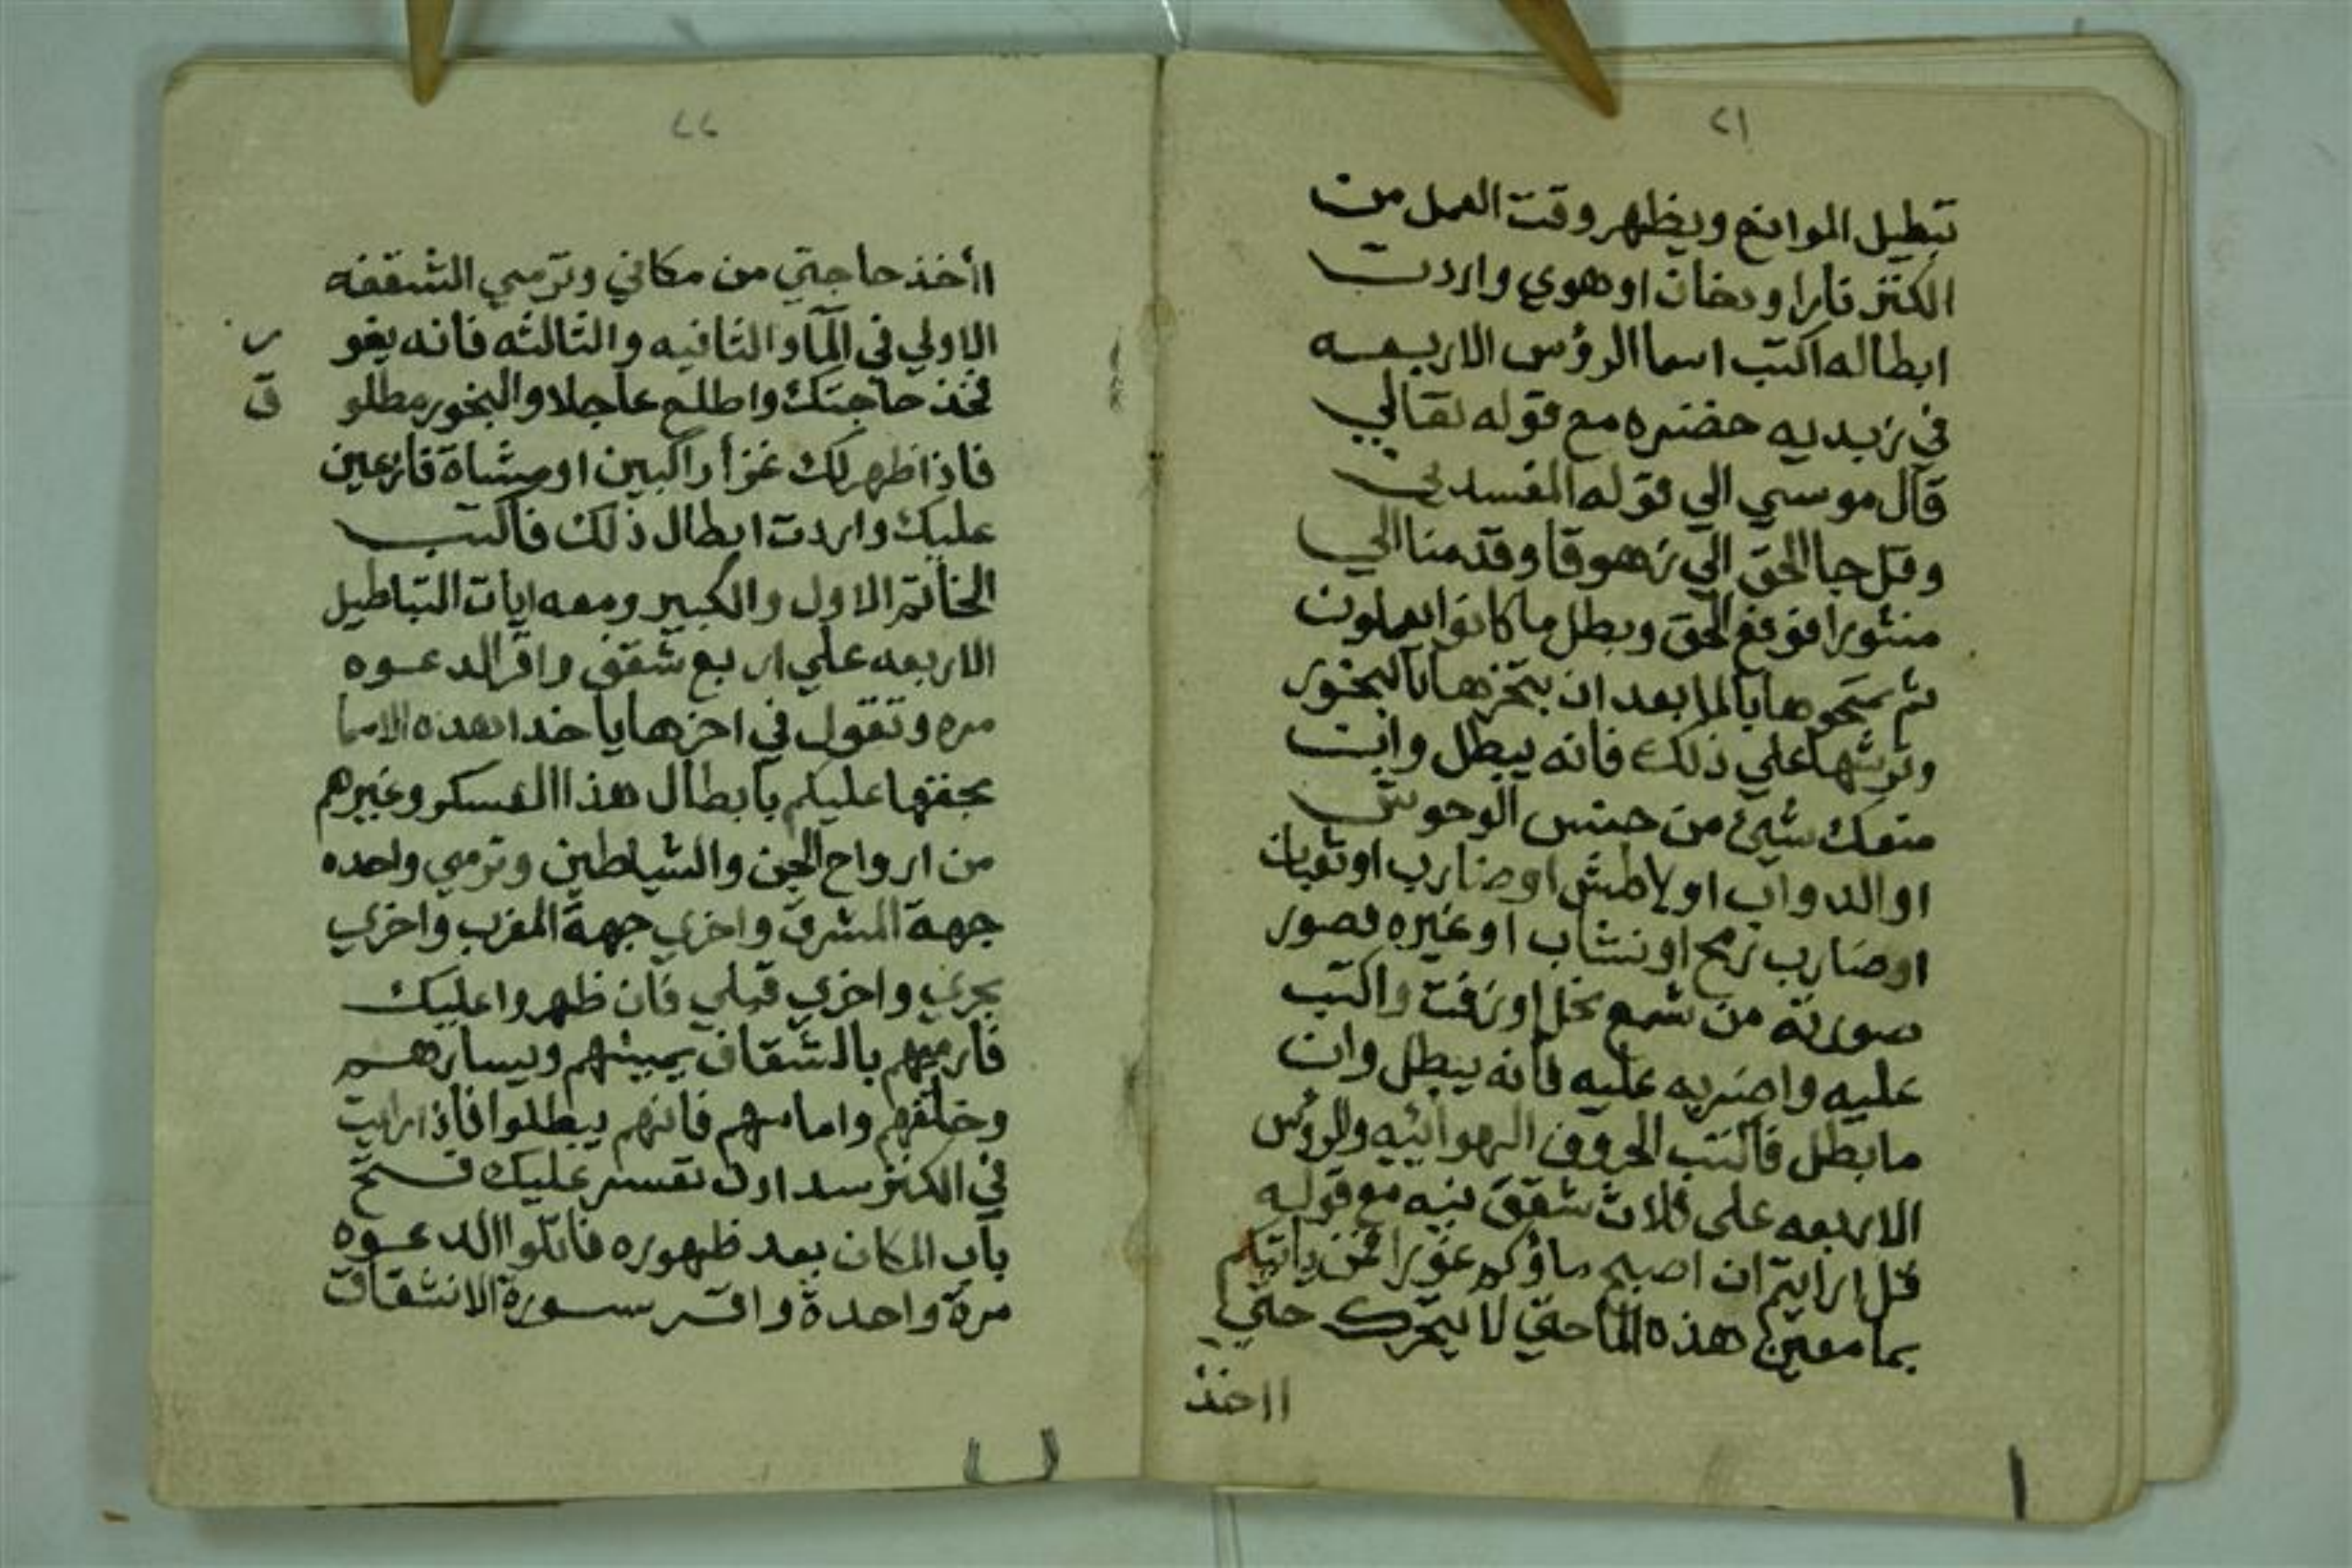 ٢١
تبطيل الموانع ويظهر وقت العمل من
الكنز نارا ودخان او هوي واردت
ابطاله اكتب اسما الرؤس الاربعه
في زبديه خضره مع قوله تعالي
قال موسي الي قوله المفسدين
وقل جا الحق الي زهوقا وقدمنا الي
منثورا فوقع الحق وبطل ما كانوا يعملون
ثم تمحوها بالما بعد ان تبخرها بالبخور
وترشها علي ذلك فانه يبطل وان
منعك شيئ من جنس الوحوش
او الدواب او لاطش او ضارب او ثعبان
او ضارب رمح او نشاب او غيره فصور
صورته من شمع نحل او زفت واكتب
عليه واضربه عليه فانه يبطل وان
ما بطل فاكتب الحروف الهوائيه والرؤس
الاربعه على ثلاث شقق نيه مع قوله
قل ارايتم ان اصبح ماؤكم غورا فمن ياتيكم
بما معين هذه الما حتي لا يتحرك حتي
ااخذ
٢٢
اأخذ حاجتي من مكاني وترمي الشقفه
الاولي في المآء والثانيه والثالثه فانه يغو ر
فخذ حاجتك واطلع عاجلا والبخور مطلو ق
فاذا ظهر لك غزا راكبين او مشاة فازعين
عليك واردت ابطال ذلك فاكتب
الخاتم الاول والكبير ومعه ايات التباطيل
الاربعه علي اربع شقف واقر الدعوه
مره وتقول في اخرها يا خدا هذه الاسما
بحقها عليكم بابطال هذا العسكر وغيرهم
من ارواح الجن والشياطين وترمي واحده
جهة المشرق واخري جهة المغرب واخري
بحري واخري قبلي فان ظهروا عليك
فارميهم بالشقاف يمينهم ويسارهم
وخلفهم وامامهم فانهم يبطلوا فاذا رايت
في الكنز سدا وان تعسر عليك فتح
باب المكان بعد ظهوره فاتلوا الدعوه
مرة واحدة واقر سورة الانشقاق